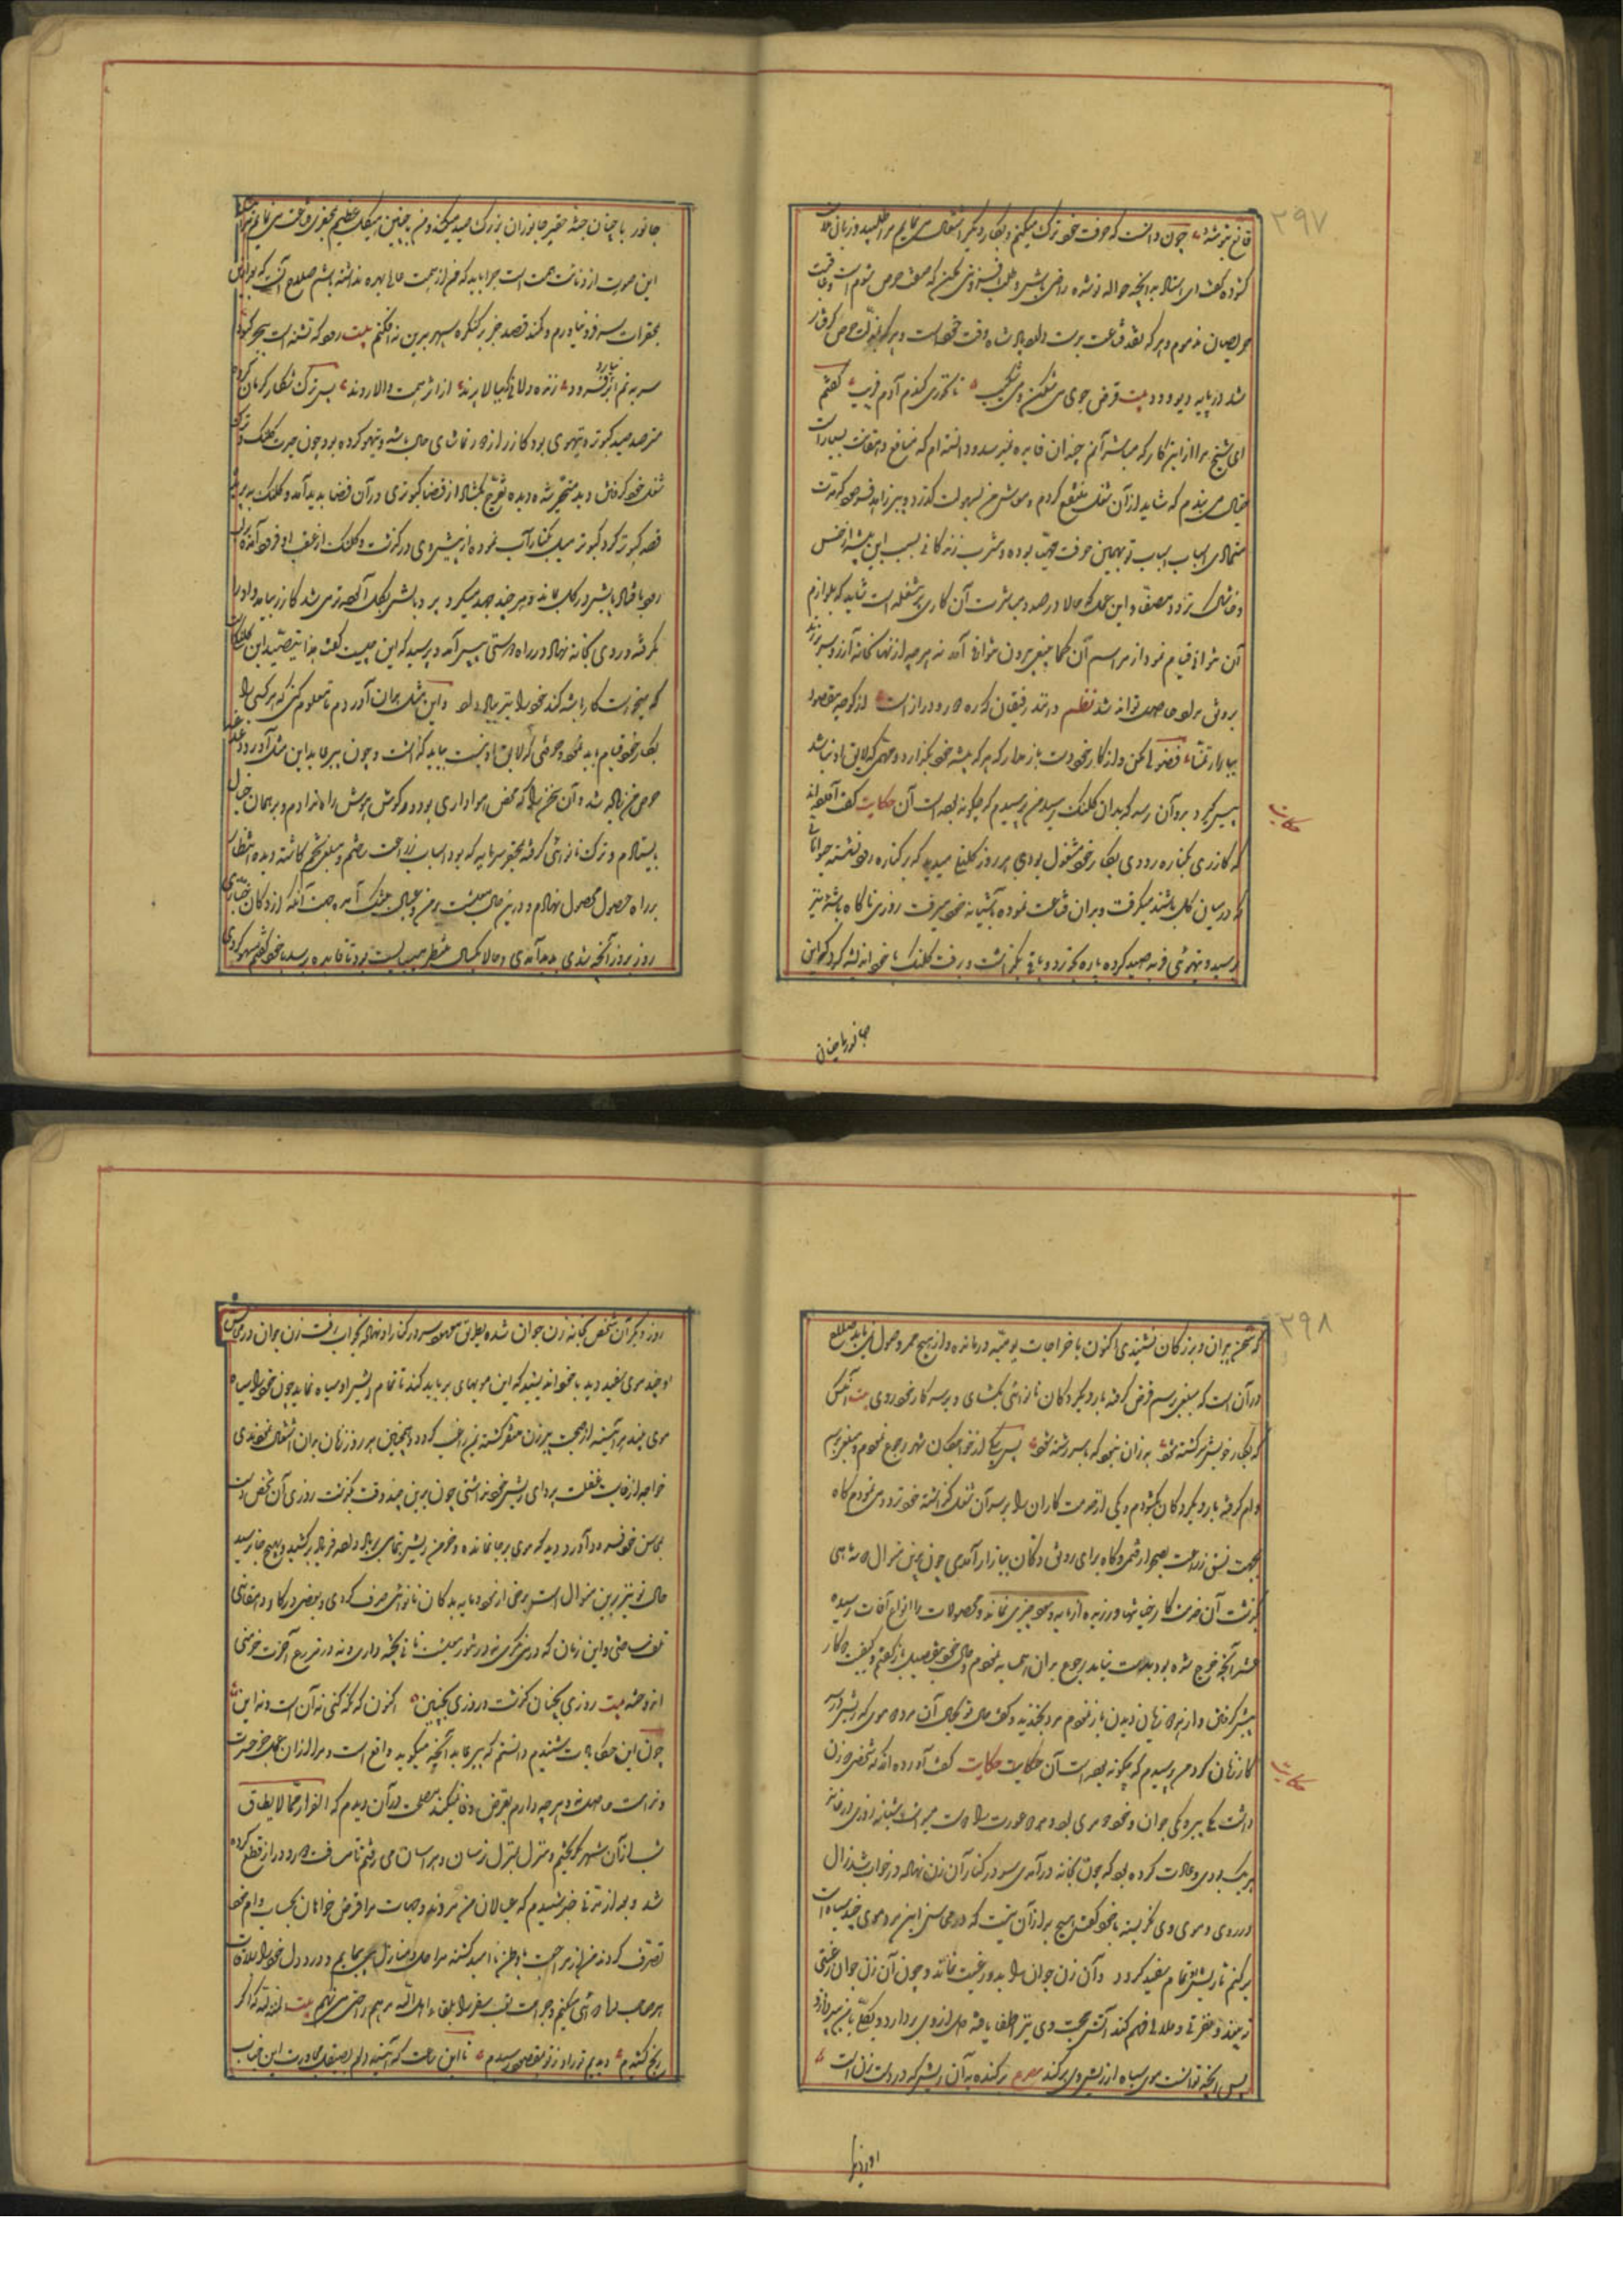 ۲۹۷
قانع بتوشهٔ چون دانست که حرفت خود ترک میکنم و بکار دیگر اشتغال می نمایم مرا طلبید و زبان
گشوده گفت ای استاد بدانچه حواله تو شده راضی باش و طلب افزونی مکن که صفت حرص شوم است و عاقبت
حریصان مذموم و هر که نقد قناعت بدست دارد پادشاه وقت خود است و هر که بمذلت حرص گرفتار
شد در پایه دیو و دد بیت قرص جوی می شکن و می شکیب تا نخوری گندم آدم فریب گفتم
ای شیخ مرا ازین کار که مباشر آنم چندان فایده نمیرسد و دانسته ام که منافع دهقانت بسیار است
خیال می بندم که شاید از آن شغل منتفع گردم و معاش من بسهولت گذرد پیر زاهد فرمود که مدت
متمادی اسباب تو بهمین حرفت مهیا بوده و مشرب زندگانی بسبب این پیشه از خس
و خاشاک تردد مصفا و این عمل که حالا در صدد مباشرت آن کاری پر مشغله است شاید که بلوازم
آن نتوانی قیام نمود از مراسم آن کما ینبغی بیرون نتوانی آمد نه هر چه از نهانخانه آرزو سر برزند
بروفق مراد حاصل تواند شد نظم در تند رفیقان که ره دور و دراز است از کوچه مقصود
بیابان تمنا فضولی مکن و از کار خود دست باز مدار که هر که پیشه خود بگذارد و مهمی که لایق او نباشد
پیش گیرد بدو آن رسد که بدان کلنگ رسید من پرسیدم که چگونه بوده است آن حکایت گفت آورده اند
حکایت
که گازری بر کناره رودی بکار خود مشغول بودی هر روز کلنگی میدید که بر کناره رود نشسته حیواناتی
که در میان گل باشند میگرفت و بدان قناعت نموده بآشیانه خود میرفت روزی ناگاه باشهٔ تیز پر
رسید و تیهوئی فربه صید کرده پاره بخورد و باقی بگذاشت و برفت کلنگ با خود اندیشه کرد که این
جانور باچنان
جانور با چنان جثه حقیر جانوران بزرگ صید میکند و من بچنین هیکل عظیم بمحقری قناعت می نمایم
این صورت از دنائت همت است چرا باید که من از همت عالی بهره نداشته باشم صلاح آنست که بعد ازین
بمحقرات سر فرو نیاورم و کمند قصد جز بر کنگره سپهر برین نیفکنم بیت
سر به نم از فرود نیارد
مترصد صید کبوتر و تیهوی بود گازر از دور تماشای حال باشه و تیهو کرده بود چون حیرت کلنگ و ترک
شغل خود کردنش دید متحیر شده دیده تفرج بگشاد از قضا کبوتری در آن فضا پدید آمد و کلنگ
قصد کبوتر کرد کبوتر میل بکنار آب نموده از پیش وی درگذشت و کلنگ از عقب او فرود آمده
بیفتاد و پایش در گل بماند و هر چند جهد میکرد که بپرد پایش بگل آلوده تر می شد گازر بیامد و او را
گرفته و روی بخانه نهاد در راه دوستی پیش آمد و پرسید که این چیست گفت هذا یتصید این کلنگ است
که میخواست کار باشه کند خود را بر باد داد و این مثل بدان آوردم تا معلوم کنی که هر کسی را
بکار خود قیام باید نمود و حرفتی که لایق او نیست بباید گذاشت و چون پیر عابد این مثل آورد
حرص من زیاده شد و آن سخن را که محض هواداری بود در گوش هوش راه ندادم و بر همان خیال
بایستادم و ترک نانوائی گرفته بمحقر سرمایه که بود اسباب زراعت بساختم و مبلغی تخم کاشته دیده انتظار
بر راه حصول محصول نهادم و درین حال معیشت بر من و عیال تنگ آمد جهت آنکه از دکان خبازی
روز بروز آنچه بدی بدید آمدی و حالا یکسال منتظر می بایست بود تا فایده رسد با خود گفتم سهو کردی
۲۹۸
که سخن پیران و بزرگان نشنیدی اکنون باخراجات یومیه درمانده و از هیچ ممر وصولی نیست صلاح
در آن است که مبلغی برسم قرض گرفته بار دیگر دکان نانوائی بگشای و بر سر کار خود روی بیت آنکس
که ز کار خویش سرگشته شود به زان نبود که باسر رشته شود پس بیکی از خواجگان شهر رجوع نمودم و مبلغی برسم
وام گرفته بار دیگر دکان بگشودم و یکی از خدمت کاران را بر سر آن شغل گذاشته خود تردد می نمودم گاه
بجهت نسق زراعت بصحرا رفتمی و گاه برای رونق دکان ببازار آمدی چون برین منوال دو سه ماهی
گذشت آن خدمت کار خیانتها ورزیده از مایه و سود چیزی نماند و محصولات را انواع آفات رسیده
عشر آنچه خرج شده بود بدست نیامد رجوع بدان همسایه نمودم و حال خود بتفصیل باز گفتم و کیفیت دو کار
پیش گرفتن و از هر دو زیان دیدن باز نمودم مرد بخندید و گفت حال تو بحال آن مرد دو موی که ریش در سر
کار زنان کرد من پرسیدم که چگونه بوده است آن حکایت حکایت گفت آورده اند که شخصی دو زن
حکایت
داشت یکی پیر و یکی جوان و خود دو موی بود و هر دو عورت را دوست میداشت شبانه روزی در خانه
هر یک بودی و عادت کرده بود که چون بخانه درآمدی سر در کنار آن زن نهاده در خواب شدی زال
در روی و موی وی نگریسته با خود گفت هیچ به از آن نیست که در محاسن این مرد موی چند سیاه است
بر کنم تا ریش او تمام سفید گردد و آن زن جوان را بدو رغبت نماند و چون آن زن جوان رغبتی
نبیند و نفرتی و ملالتی فهم کند آتش محبت وی نیز انطفا یافته دل از وی بردارد و بکلی با من پردازد
پس آنچه توانست موی سیاه از ریش وی بر کند مصرع برکنده به آن ریش که در دست زن است
روز دیگر
روز دیگر آن شخص بخانه زن جوان شده بطریق معهود سر در کنار او نهاد بخواب رفت زن جوان در محاسن
او چند موی سفید دید با خود اندیشید که این مویهای سفید بر باید کند تا تمام ریش او سیاه نماید چون خود را سیاه
موی بیند هر آینه از صحبت پیر زن متنفر گشته بمن راغب گردد و همچنین هر روز زنان بدان اشتغال نمودندی
خواجه از غایت غفلت پروای ریش خود نداشتی چون برین چند وقت بگذشت روزی آن شخص دست
بمحاسن خود فرود آورد دید که موی بر جا نمانده و خرمن ریش تمام بر باد داده فریاد برکشید و بهیچ جا نرسید
حال تو نیز برین منوال است برخی از نقود مایه بدکان نانوائی صرف کردی و بعضی در کار و دهقانی
تلف ساختی و این زمان که در می نگری نه در تنور معیشت نان پخته داری و نه در مزرع آخرت خرمنی
اندوخته بیت روزی بچنان گذشت و روزی بچنین اکنون که نگه کنی نه آن است و نه این
چون این حکایت شنیدم دانستم که پیر عابد آنچه میگوید واقع است و مرا از آن عمل جز حسرت
و ندامت حاصل نه و هر چه دارم بقرض وفا نمیکند مصلحت در آن دیدم که الفرار مما لا یطاق
شب از آن شهر گریختم و منزل بمنزل ترسان و هراسان می رفتم تا مسافت دور و دراز قطع کرده
شد و بعد از مدتها خبر شنیدم که عیالان من مردند و جهات مرا قرض خواهان بحساب وام خود
تصرف کردند من از مراجعت باوطن نا امید گشته مراحل و منازل می پیمایم و درد دل خود را بملاقات
هر صاحب دلی دوائی میکنم و جراحت تعب سفر را بلقاء اهل الله مرهم راحتی می نهم بیت
رنج کشیدم دیدیم ترا و ز تو بمقصود رسیدم تا این ساعت که آئینه دلم بصیقل مجاورت این جناب